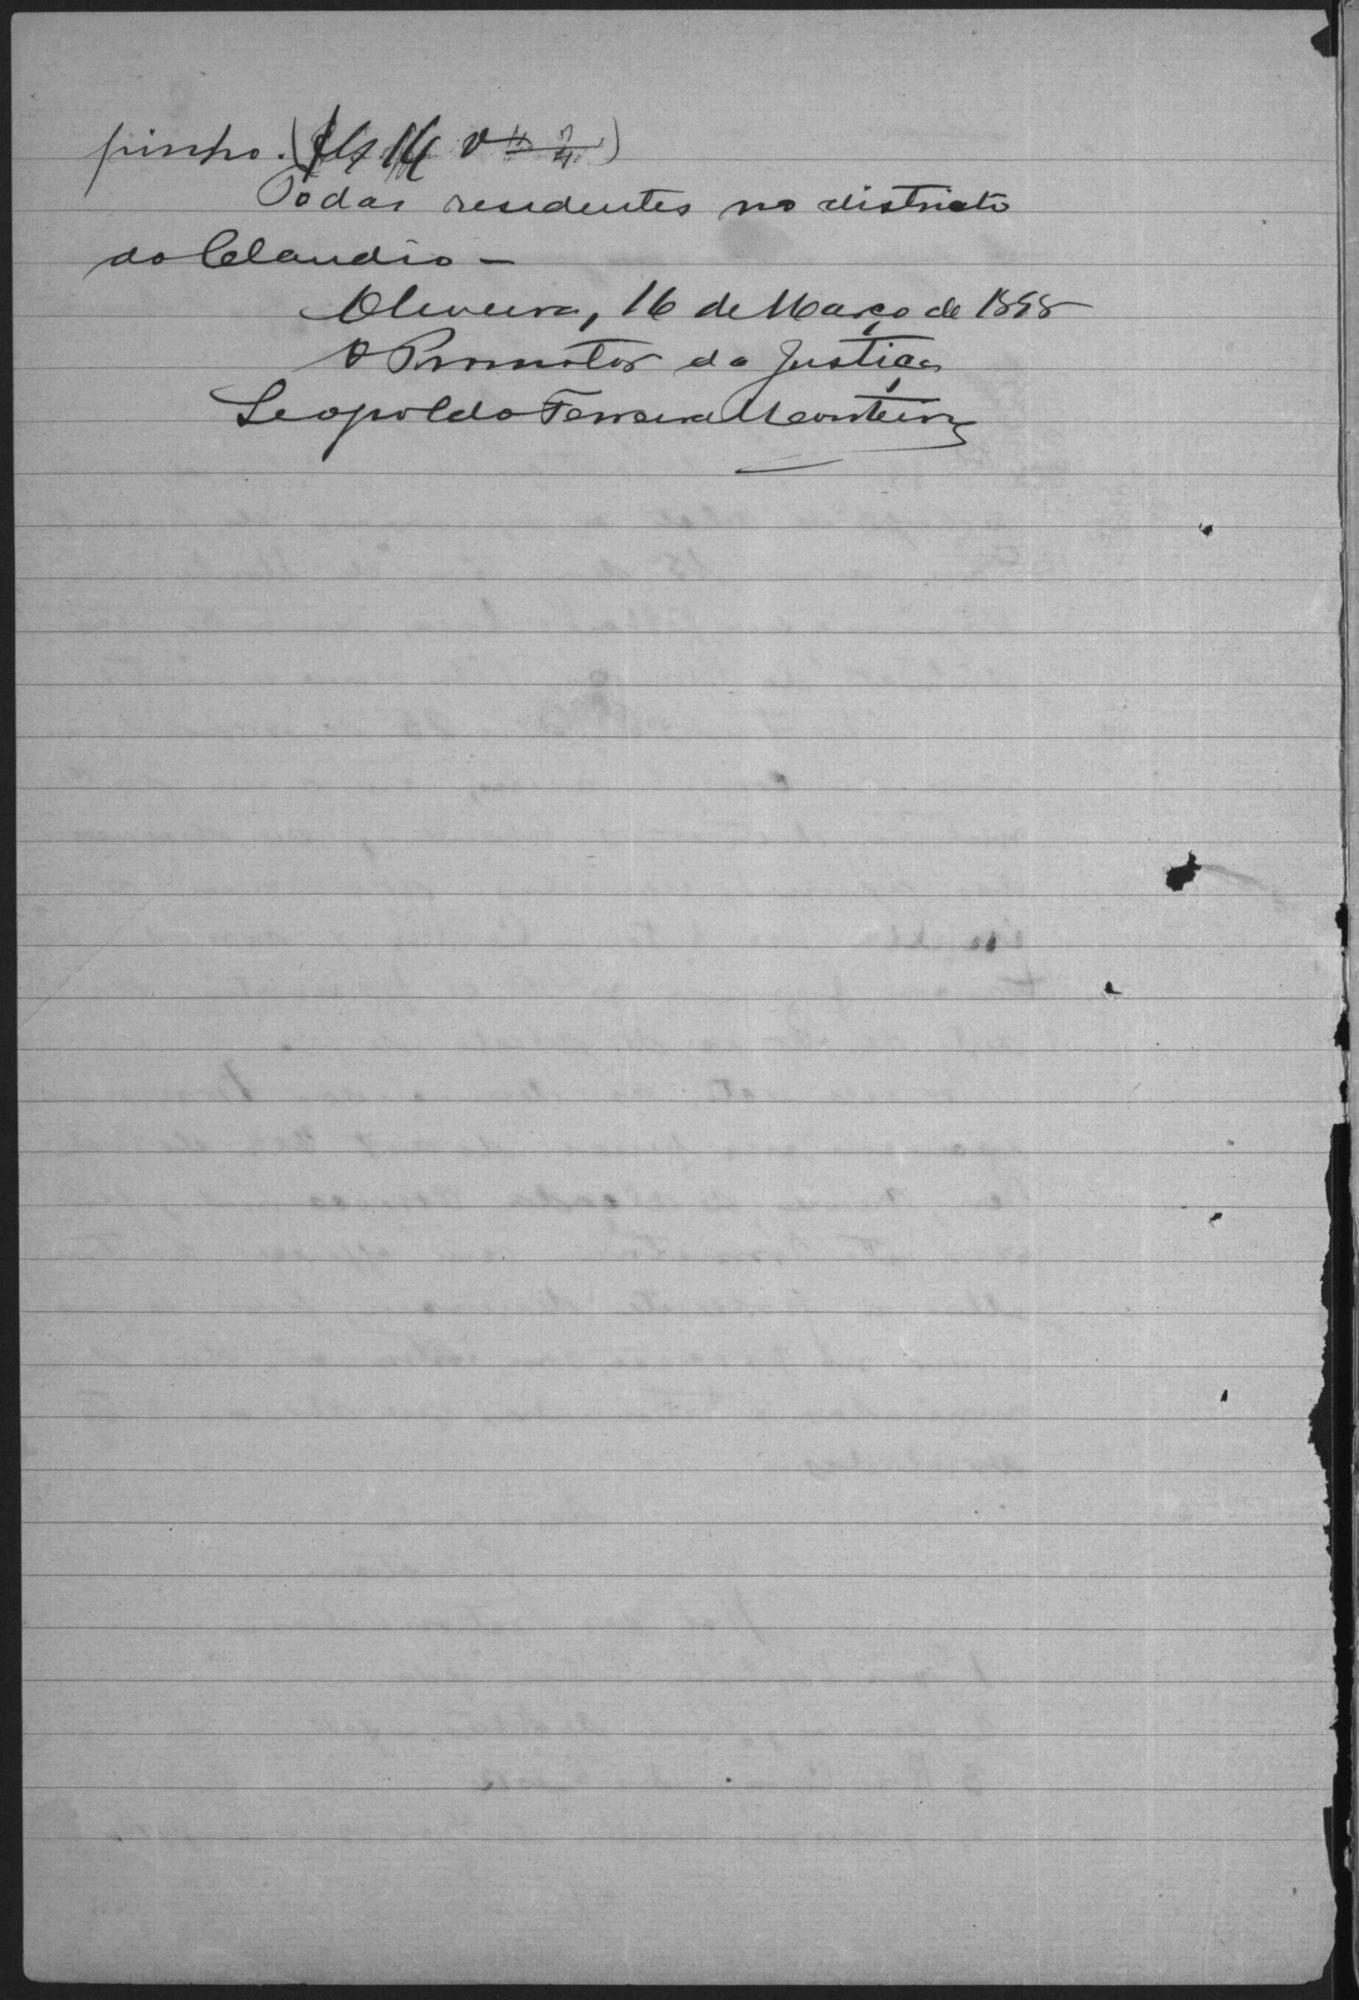 pinho. (fls 14 v
Todas residentes no districto
do Claudio -
Oliveira, 16 de Março de 1898
O Promotor da Justiça
Leopoldo Ferreira Monteiro